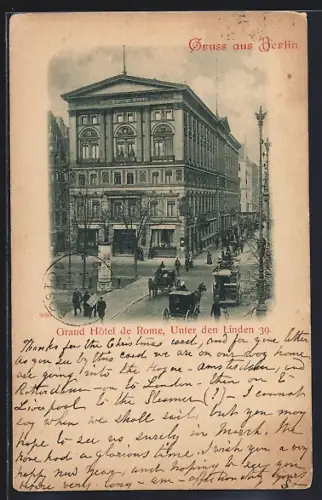 Gruss aus Berlin
Grand Hôtel de Rome, Unter den Linden 39.
Thanks for the Christmas card, and for your letter
As you see by this card we are on our way home
are going into the Hague - Amsterdam, and
Rotterdam - on to London - then on to
Liverpool to the Steamer (?) - I cannot
say when we shall sail, but you may
hope to see us, surely in March. We
have had a glorious time. I wish you a very
happy New Year, and hoping to see you
before very long - am - affectionately yours